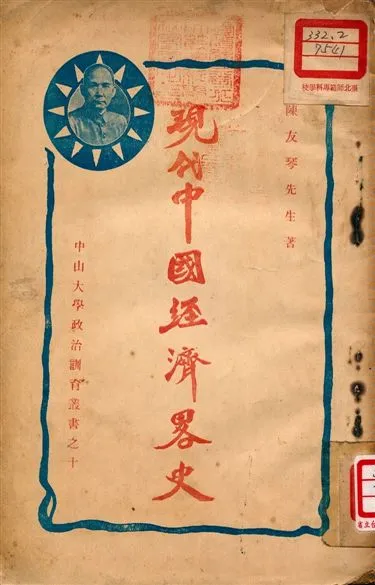 332.2
9541
校學科專範師北臺
陳友琴先生著
現代中國経濟畧史
中山大學政治訓育叢書之十
省立台